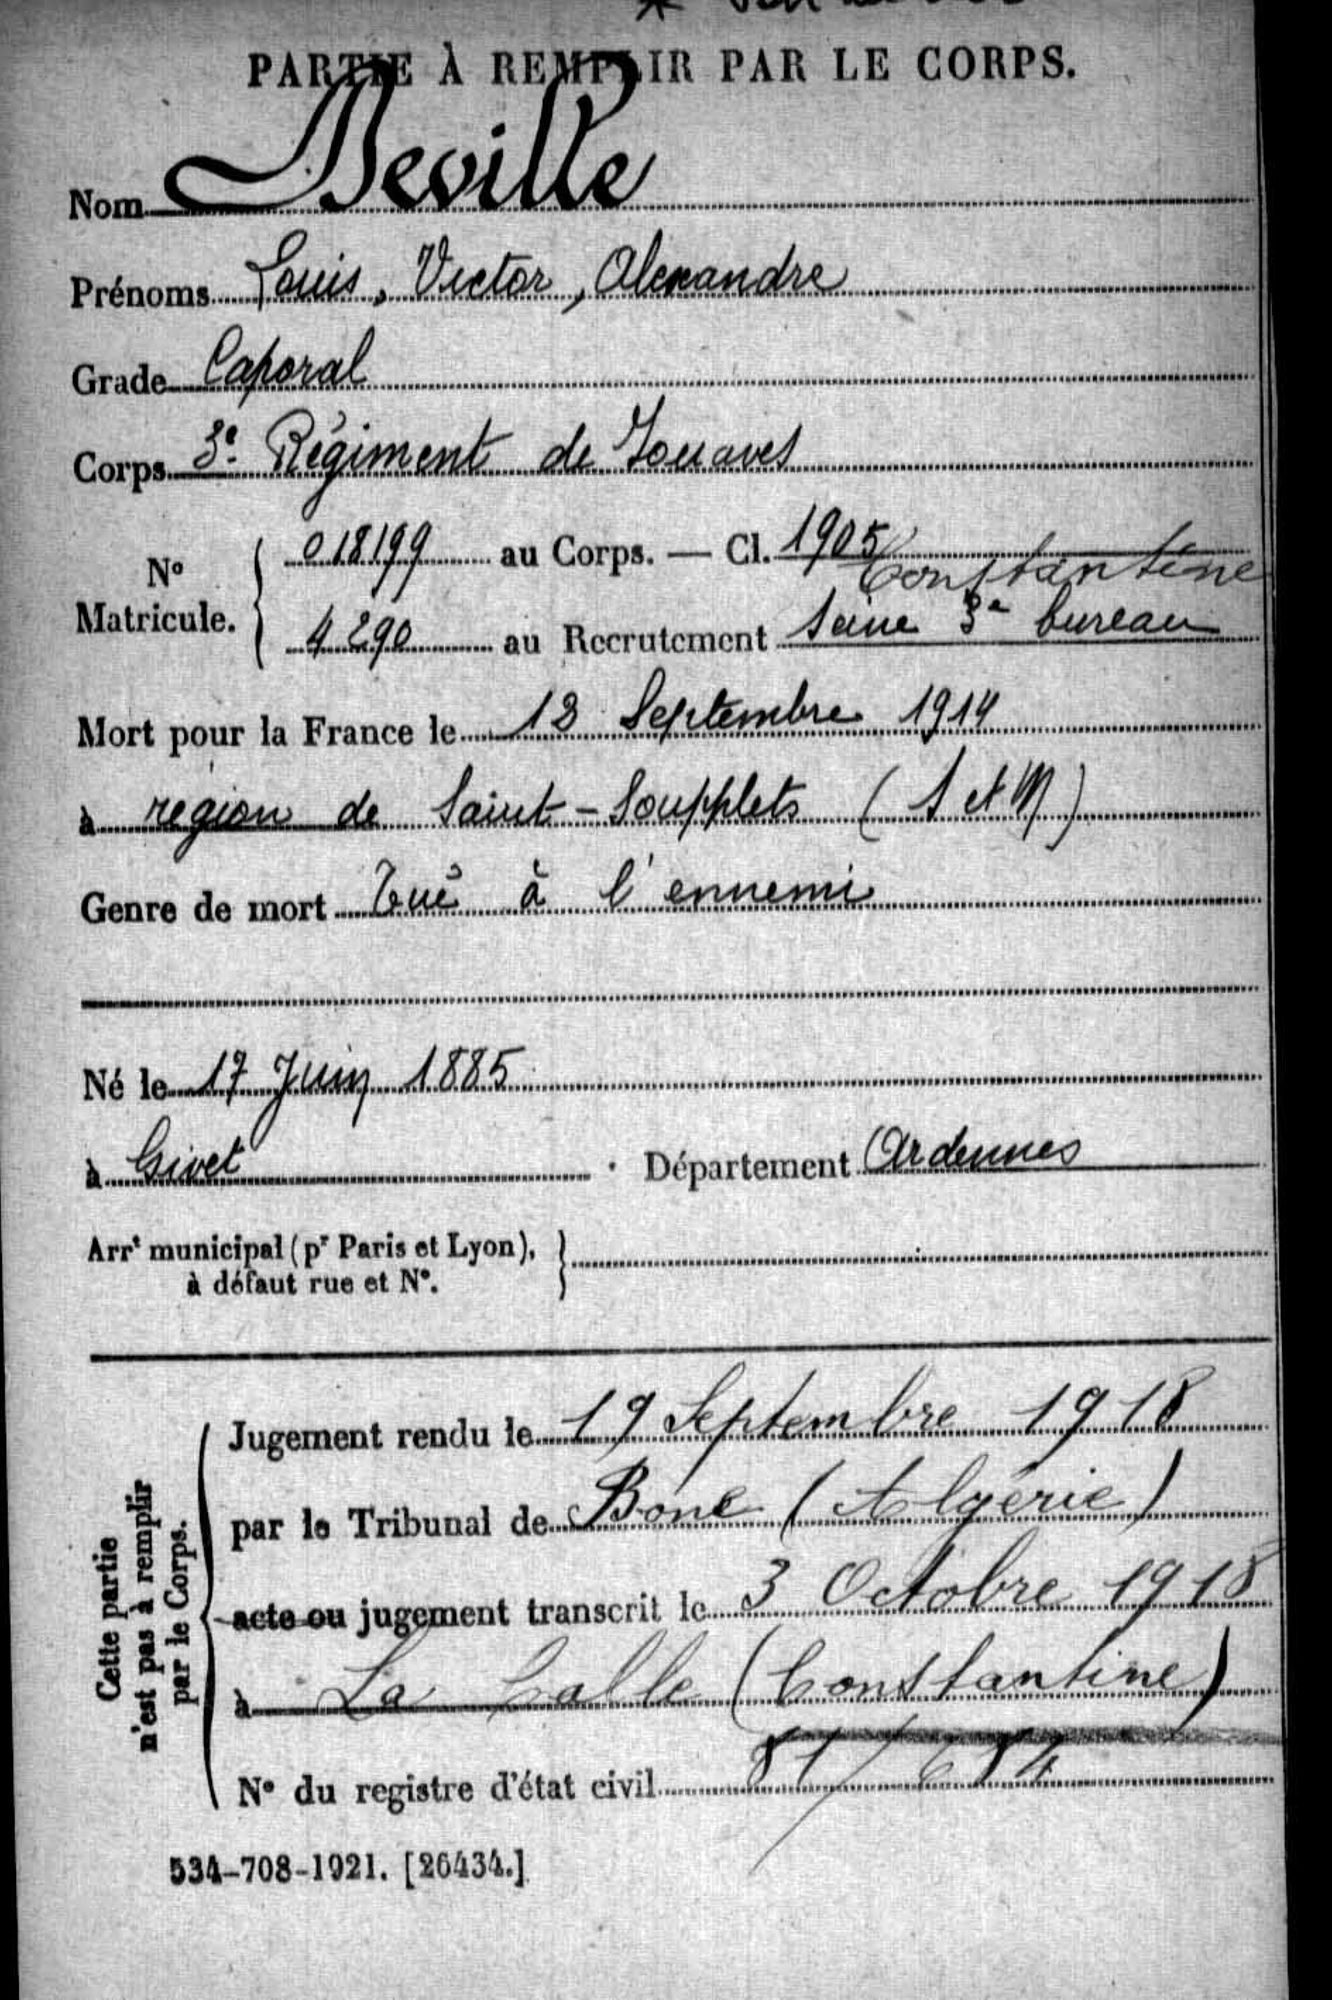 PARTIE À REMPLIR PAR LE CORPS.
Nom Deville
Prénoms Louis, Victor, Alexandre
Grade Caporal
Corps 3e Régiment de Zouaves
N° Matricule. { 018199 au Corps. — Cl. 1905
Constantine
4290 au Recrutement Seine 3e bureau
Mort pour la France le 13 Septembre 1914
à région de Saint-Soupplets (S et M)
Genre de mort Tué à l'ennemi
Né le 17 Juin 1885
à Givet Département Ardennes
Arrt municipal (pr Paris et Lyon), }
à défaut rue et N°.
Cette partie n'est pas à remplir par le Corps.
Jugement rendu le 19 Septembre 1918
par le Tribunal de Bone (Algérie)
acte ou jugement transcrit le 3 Octobre 1918
à La Calle (Constantine)
N° du registre d'état civil
534-708-1921. [26434.]